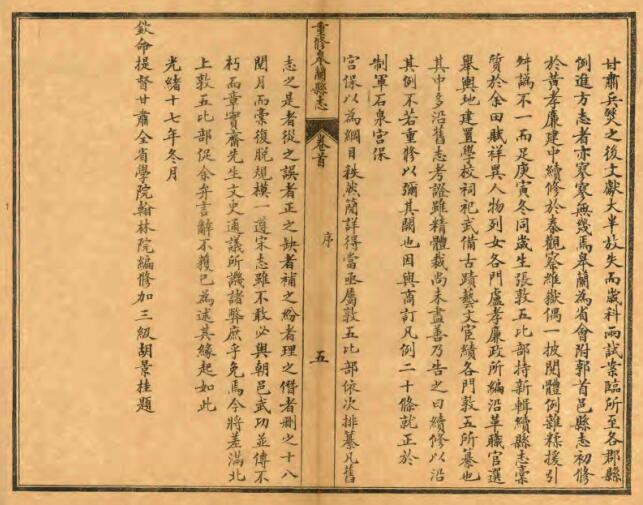 甘肅兵燹之後文獻大半放失而歲科兩試案臨所至各郡縣
例進方志者亦寥寥無幾焉皋蘭為省會附郭首邑縣志初修
於黃孝廉建中續修於秦觀察維嶽偶一披閱體例雜糅援引
舛譌不一而足庚寅冬同歲生張敦五比部持新輯續縣志稾
質於余田賦祥異人物列女各門盧孝廉政所編沿革職官選
舉輿地建置學校祠祀武備古蹟藝文宦績各門敦五所纂也
其中多沿舊志考證雖精體裁尚未盡善乃告之曰續修以沿
其例不若重修以彌其闕也因與商訂凡例二十條就正於
制軍石泉宮保
重修皋蘭縣志
卷首
序
五
宮保以為綱目秩然簡詳得當亟屬敦五比部依次排纂凡舊
志之是者從之誤者正之缺者補之紛者理之僭者刪之十八
閱月而稾復脫規模一遵宋志雖不敢必與朝邑武功並傳不
朽而章實齋先生文史通議所譏諸弊庶乎免焉今將差滿北
上敦五比部促余弁言辭不獲已為述其緣起如此
光緒十七年冬月
欽命提督甘肅全省學院翰林院編修加三級胡景桂題